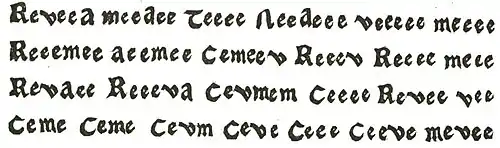 Reveea meedee Teeee Neadeee veeeee meeee
Reeemee aeemee Cemeev Reeev Reeee meee
Revaee Reeeva Cevmem Ceeee Revee vee
Ceme Ceme Cevm Ceve Ceee Ceeve mevee